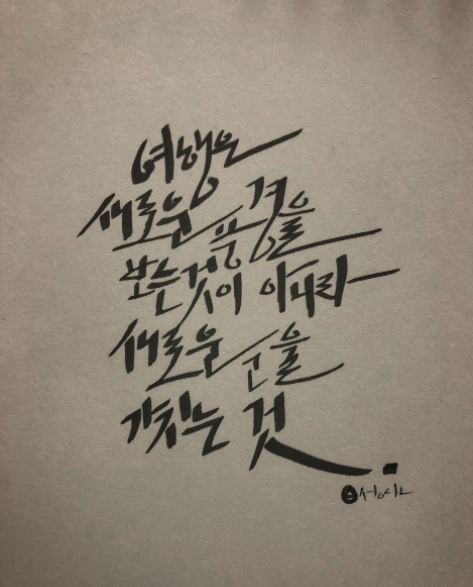 여행은
새로운 풍경을
보는것이 아니라
새로운 눈을
가지는 것.